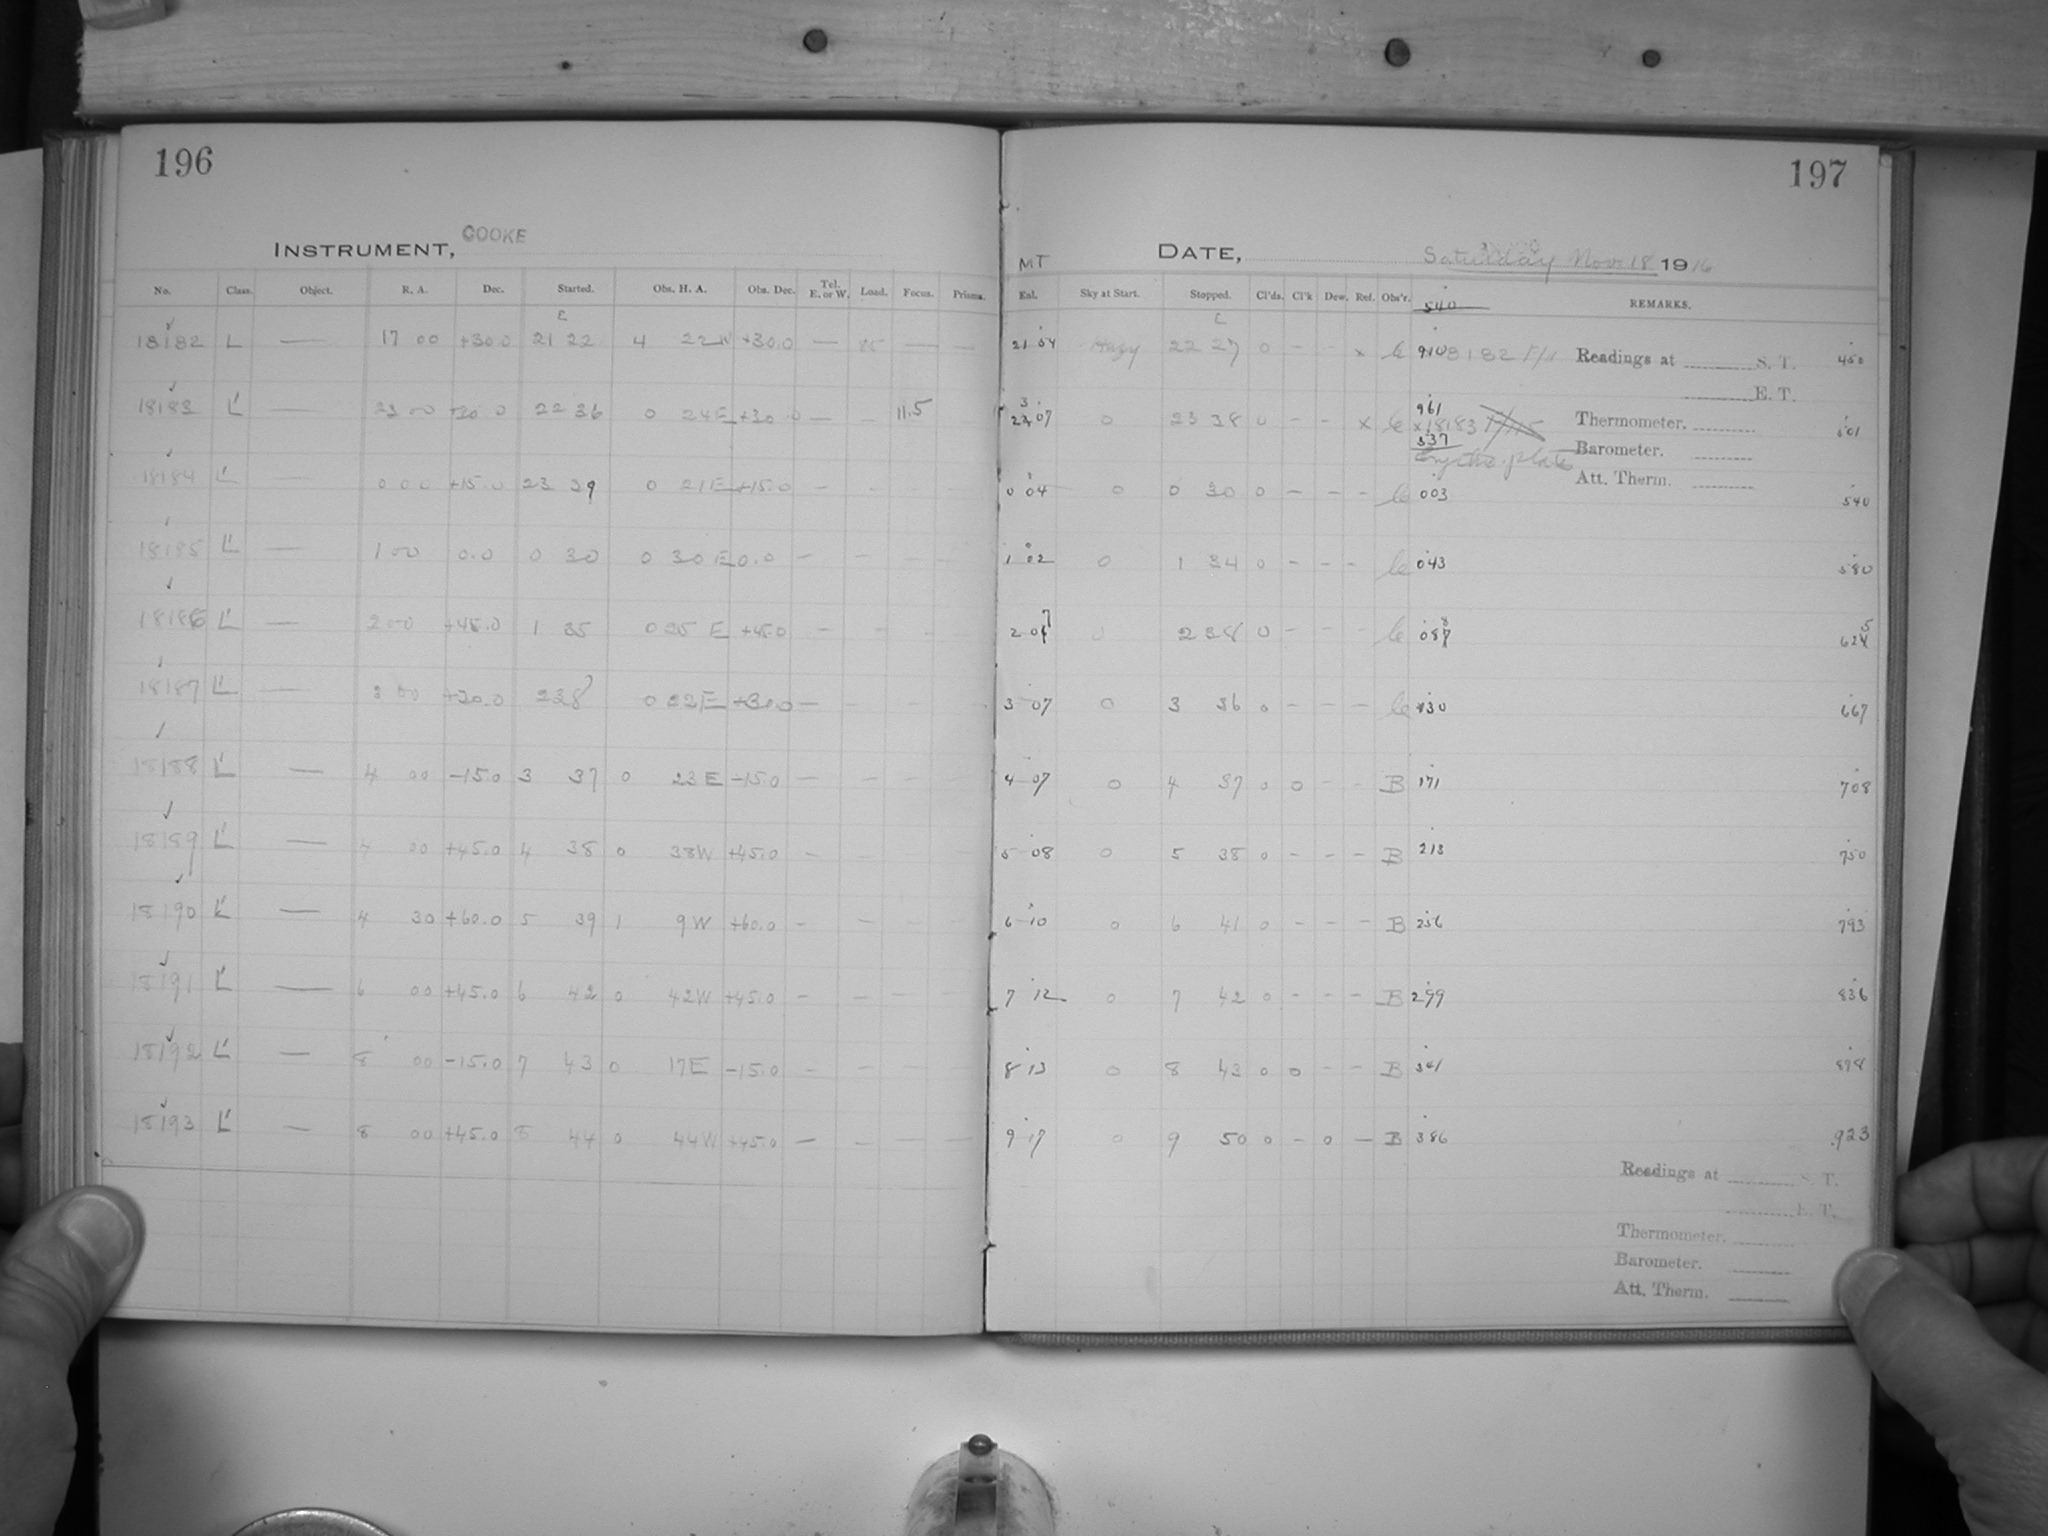 196
INSTRUMENT, COOKE
No. Class. Object. R. A. Dec. Started. Obs. H. A. Obs. Dec. Tel. E. or W. Load. Focus. Prisms.
18182 L — 17 00 +30.0 21 22 4 22W +30.0 — — —
18183 L' — 23 00 +30.0 22 36 0 24E +30.0 — — 11.5
18184 L' — 0 00 +15.0 23 39 0 21E +15.0 — — — —
18185 L' — 1 00 0.0 0 30 0 30E 0.0 — — — —
18186 L' — 2 00 +45.0 1 35 0 25 E +45.0 — — — —
18187 L' — 3 00 +30.0 2 38 0 22E +30.0 — — — —
18188 L' — 4 00 -15.0 3 37 0 23E -15.0 — — — —
18189 L' — 4 00 +45.0 4 38 0 38W +45.0 — — — —
18190 L' — 4 30 +60.0 5 39 1 9W +60.0 — — — —
18191 L' — 6 00 +45.0 6 42 0 42W +45.0 — — — —
18192 L' — 8 00 -15.0 7 43 0 17E -15.0 — — — —
18193 L' — 8 00 +45.0 8 44 0 44W +45.0 — — — —
197
MT DATE, Saturday Nov. 18 1916
Enl. Sky at Start. Stopped. Cl'ds. Cl'k Dew. Ref. Obs'r. 540 REMARKS.
21 54 Hazy 22 27 0 - - x 910 Readings at S. T. 450
E. T.
23 07 0 23 38 0 - - x 961 x18183 Thermometer. 501
537 Barometer.
Att. Therm.
0 04 0 0 30 0 - - - 003 540
1 02 0 1 34 0 - - - 043 580
2 07 0 2 38 0 - - - 088 625
3 07 0 3 36 0 - - - 130 667
4 07 0 4 37 0 0 - - B 171 708
5 08 0 5 38 0 - - - B 213 750
6 10 0 6 41 0 - - - B 256 793
7 12 0 7 42 0 - - - B 299 836
8 13 0 8 43 0 0 - - B 341 878
9 17 0 9 50 0 - 0 - B 386 923
Readings at S. T.
E. T.
Thermometer.
Barometer.
Att. Therm.